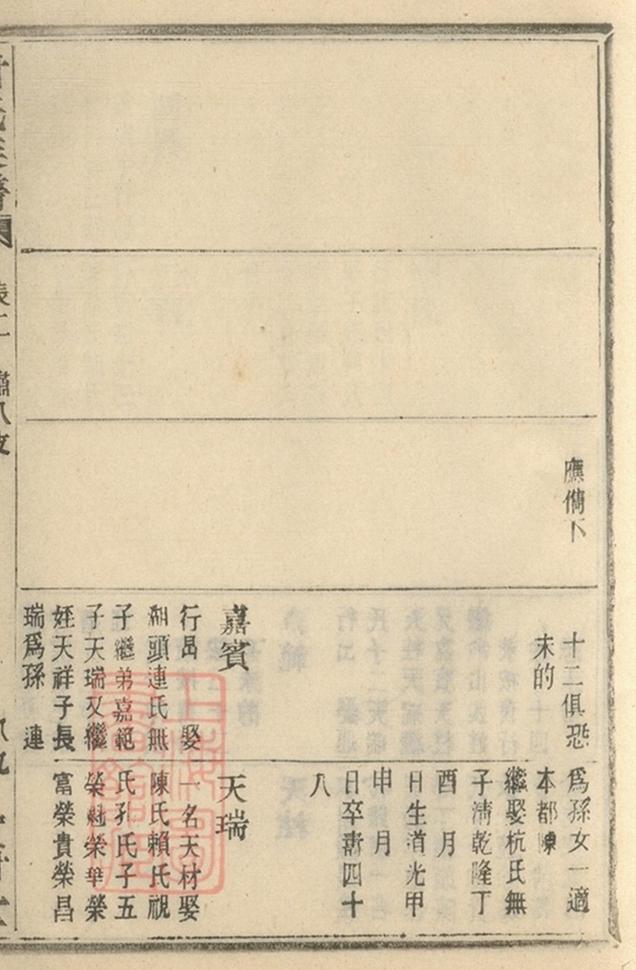 應儁下
十二俱恐
未的
嘉賓
行邑 娶
湖頭連氏無
子繼弟嘉範
子天瑞又繼
姪天祥子長
瑞爲孫 連
爲孫女一適
本都陳
繼娶杭氏無
子清乾隆丁
酉 月
日生道光甲
申 月
日卒壽四十
八
天瑞
一名天材娶
陳氏賴氏視
氏孔氏子五
榮 榮華榮
富榮貴榮昌